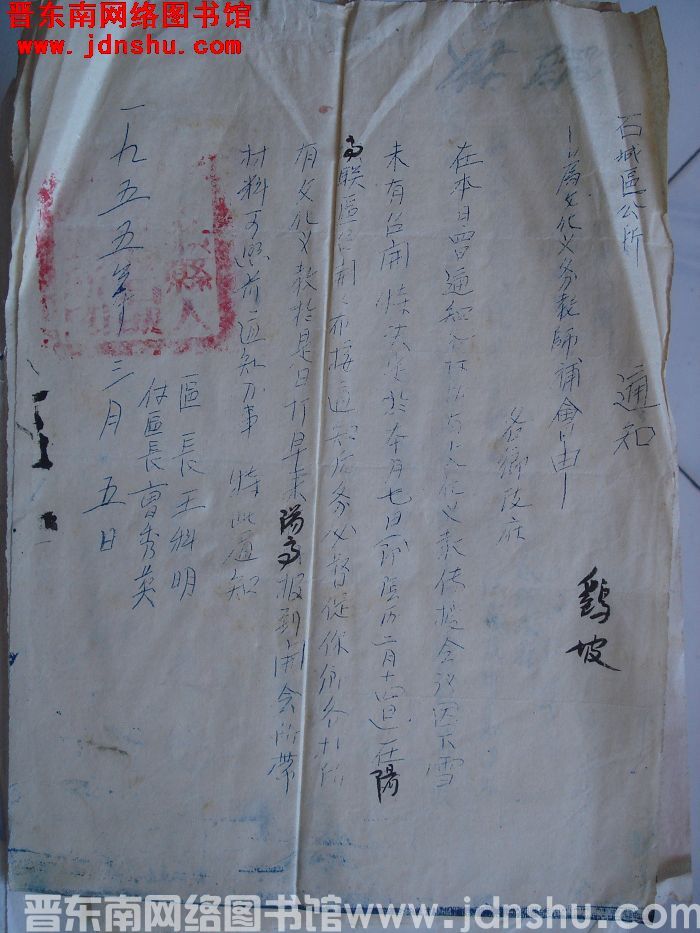 晋东南网络图书馆
www.jdnshu.com
石城區公所 通知
一為文化义务教師補會由一
各鄉政府 鷄坡
在本日曾通知 文化义教传授会议因下雪
未有召開 特决定於本月七日 即阴历二月十四日 在陽
高联區召開、 希接通知后务必督促你鄉各村所
有文化义教於是日打早来陽高报到 開会所带
材料可照前通知办事 特此通知
區長王科明
付區長曹秀英
一九五五年三月五日
縣人
晋东南网络图书馆 www.jdnshu.com